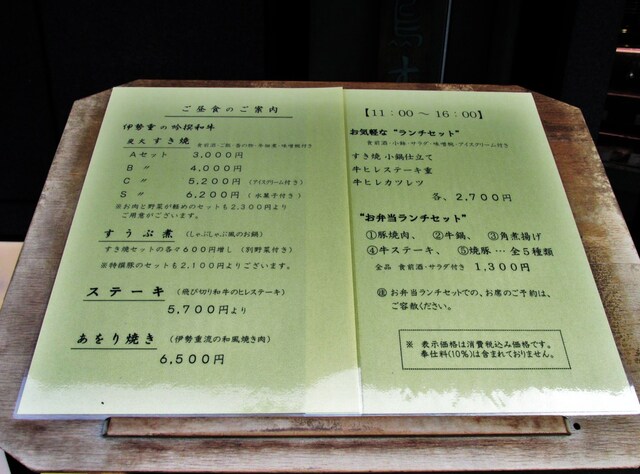 ご昼食のご案内
伊勢重の吟撰和牛
炭火 すき焼
Aセット 3,000円
B 〃 4,000円
C 〃 5,200円 (アイスクリーム付き)
S 〃 6,200円 (水菓子付き)
※お肉と野菜が軽めのセットも2,300円より
ご用意がございます。
すうぷ煮 (しゃぶしゃぶ風のお鍋)
すき焼セットの各々600円増し (別野菜付き)
※特撰豚のセットも2,100円よりございます。
ステーキ (飛び切り和牛のヒレステーキ)
5,700円より
あをり焼き (伊勢重流の和風焼き肉)
6,500円
【11：00 〜 16：00】
お気軽な “ランチセット”
食前酒・小鉢・サラダ・味噌椀・アイスクリーム付き
すき焼 小鍋仕立て
牛ヒレステーキ重
牛ヒレカツレツ
各、2,700円
“お弁当ランチセット”
①豚焼肉、 ②牛鍋、 ③角煮揚げ
④牛ステーキ、 ⑤焼豚… 全5種類
全品 食前酒・サラダ付き 1,300円
㊟ お弁当ランチセットでの、お席のご予約は、
ご容赦ください。
※ 表示価格は消費税込み価格です。
奉仕料(10%)は含まれておりません。